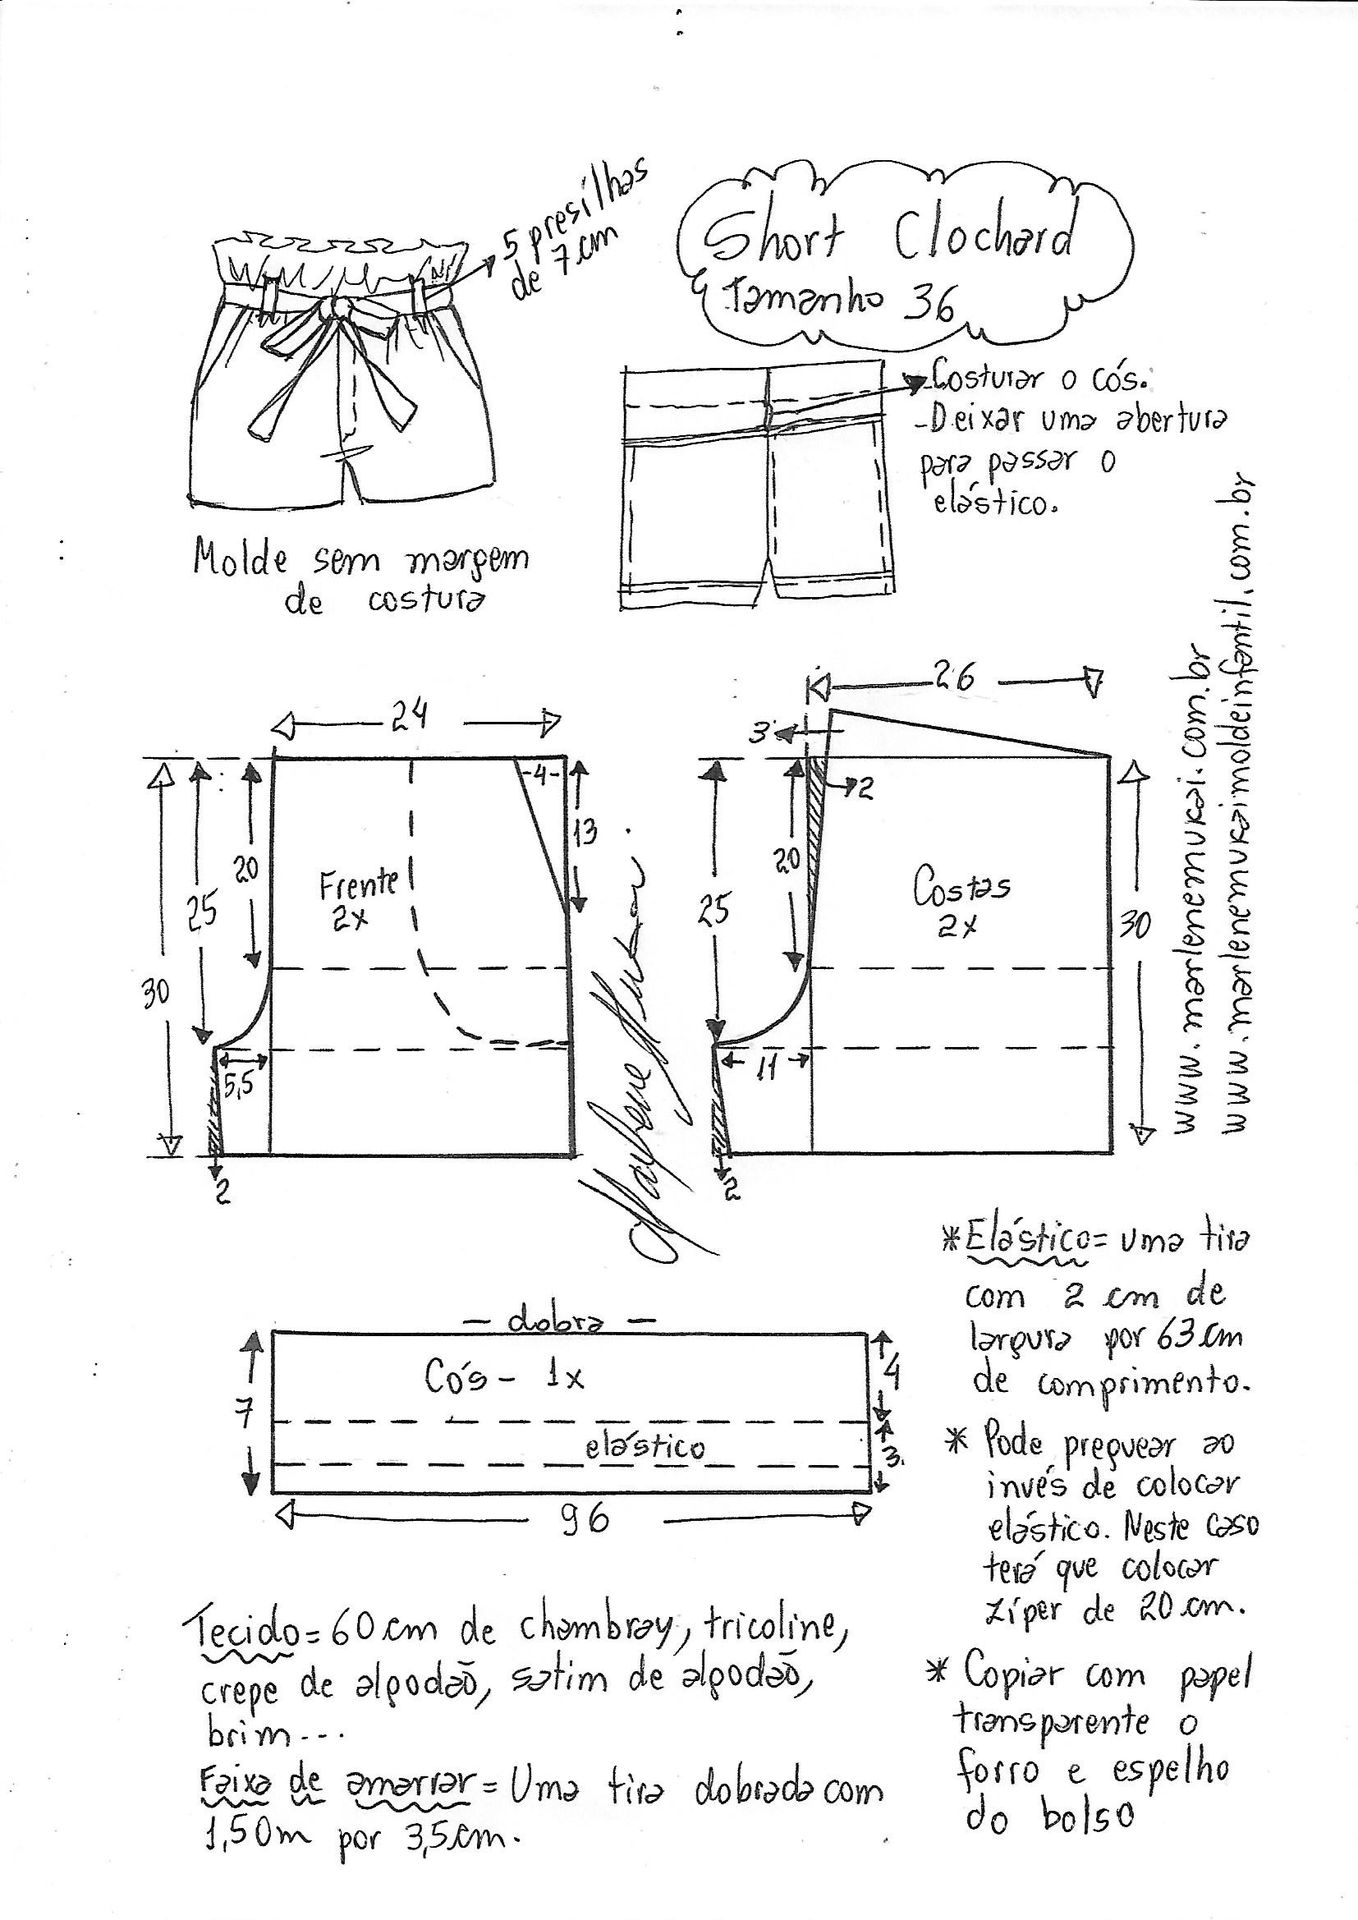 5 presilhas
de 7 cm
Short Clochard
Tamanho 36
-Costurar o cós.
-Deixar uma abertura
para passar o
elástico.
Molde sem margem
de costura
www.marlenemukai.com.br
www.marlenemukaimoldeinfantil.com.br
24
4
13
20
25
30
Frente
2x
5,5
2
26
3
2
20
25
30
Costas
2x
11
2
- dobra -
Cós - 1x
elástico
7
4
3
96
*Elástico= uma tira
com 2 cm de
largura por 63 cm
de comprimento.
* Pode preguear ao
invés de colocar
elástico. Neste caso
terá que colocar
zíper de 20 cm.
* Copiar com papel
transparente o
forro e espelho
do bolso
Tecido= 60 cm de chambray, tricoline,
crepe de algodão, satim de algodão,
brim...
Faixa de amarrar= Uma tira dobrada com
1,50m por 3,5 cm.